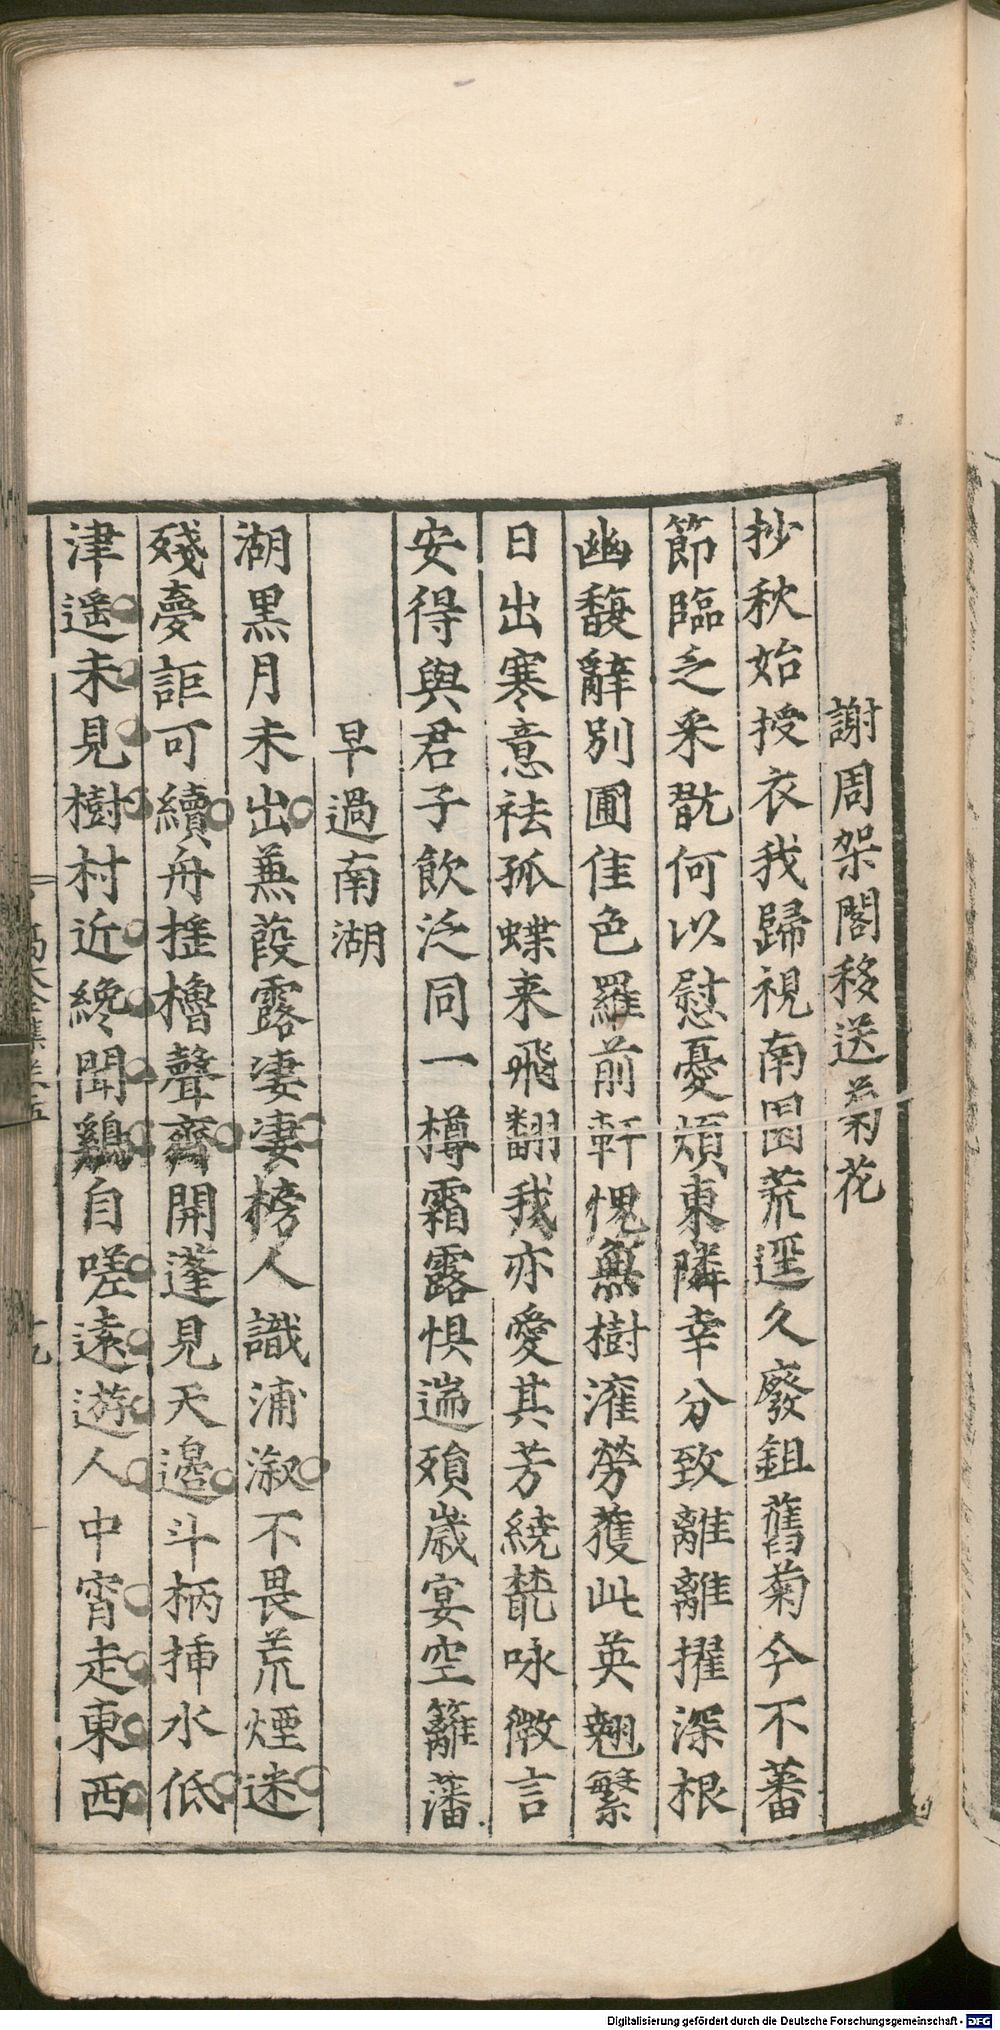 謝周架閣移送菊花
抄秋始授衣我歸視南園荒逕久廢鉏舊菊今不蕃
節臨乏采翫何以慰憂煩東隣幸分致離離擢深根
幽馥辭別圃佳色羅前軒愧無樹灌勞獲此英翹繁
日出寒意祛孤蝶来飛翻我亦愛其芳繞藂咏微言
安得與君子飲泛同一樽霜露惧遄殞歲宴空籬藩
早過南湖
湖黒月未出蒹葭露凄凄榜人識浦溆不畏荒煙迷
殘夢詎可續舟摇櫓聲齊開蓬見天邉斗柄挿水低
津遥未見樹村近纔聞鷄自嗟遠遊人中宵走東西
大全集卷五
十九
Digitalisierung gefördert durch die Deutsche Forschungsgemeinschaft - DFG